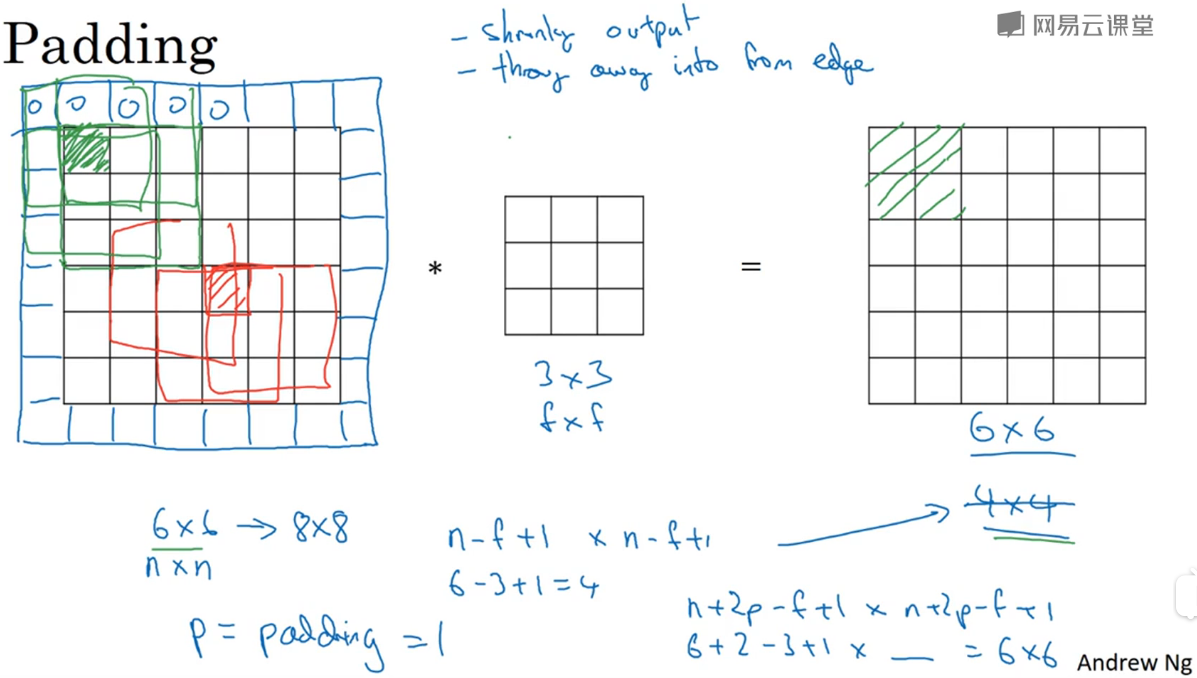 Padding
- shrinky output
- throw away info from edge
网易云课堂
0 0 0 0 0
*
=
3 × 3
f × f
6 × 6
4 × 4
6 × 6 → 8 × 8
n × n
n - f + 1 × n - f + 1
6 - 3 + 1 = 4
p = padding = 1
n + 2p - f + 1 × n + 2p - f + 1
6 + 2 - 3 + 1 × __ = 6 × 6
Andrew Ng